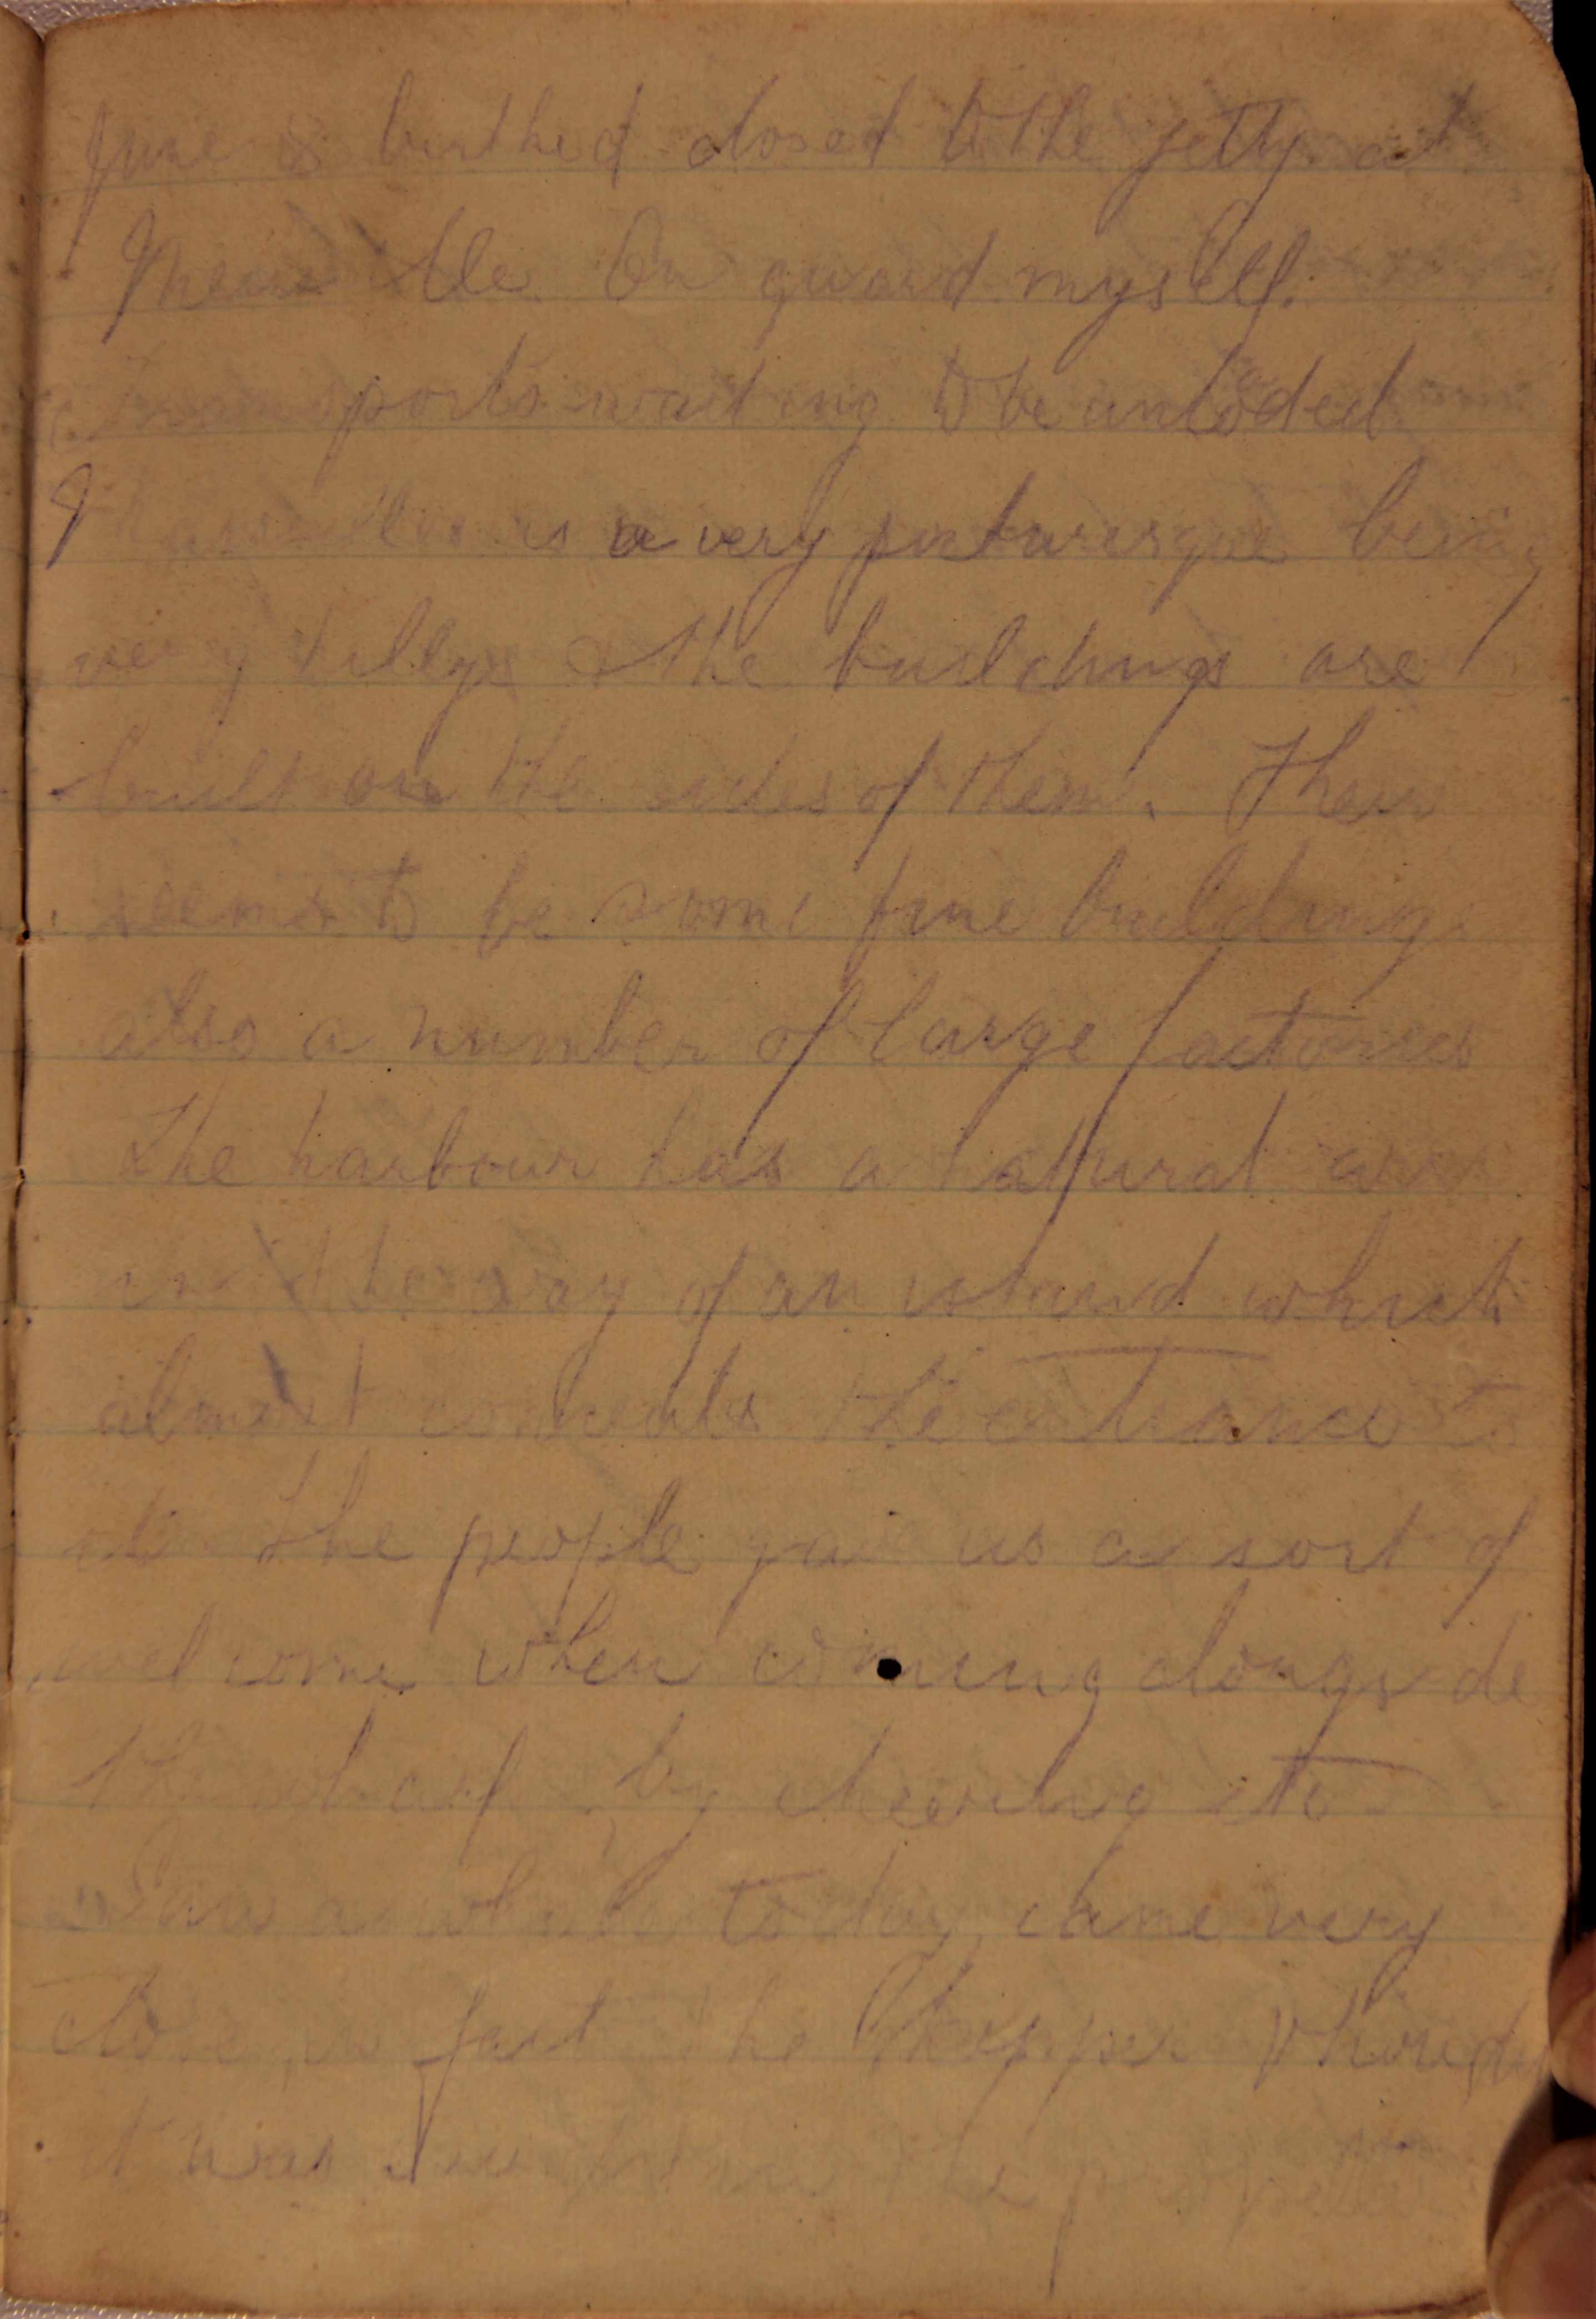 June 8 berthed closed to the jetty at
On guard myself.
Transports waiting to be unloded
Marseilles is a very picturesque being
very hillys & the buildings are
built on the sides of them. Their
seems to be some fine buildings
also a number of large factories
The harbour has a natural
in the way of an island which
almost conceals the entrance to
it. The people gave us a sort of
welcome when coming alongside
the wharf by cheering etc
Saw a whale today, came very
close, in fact the
it was the propeller